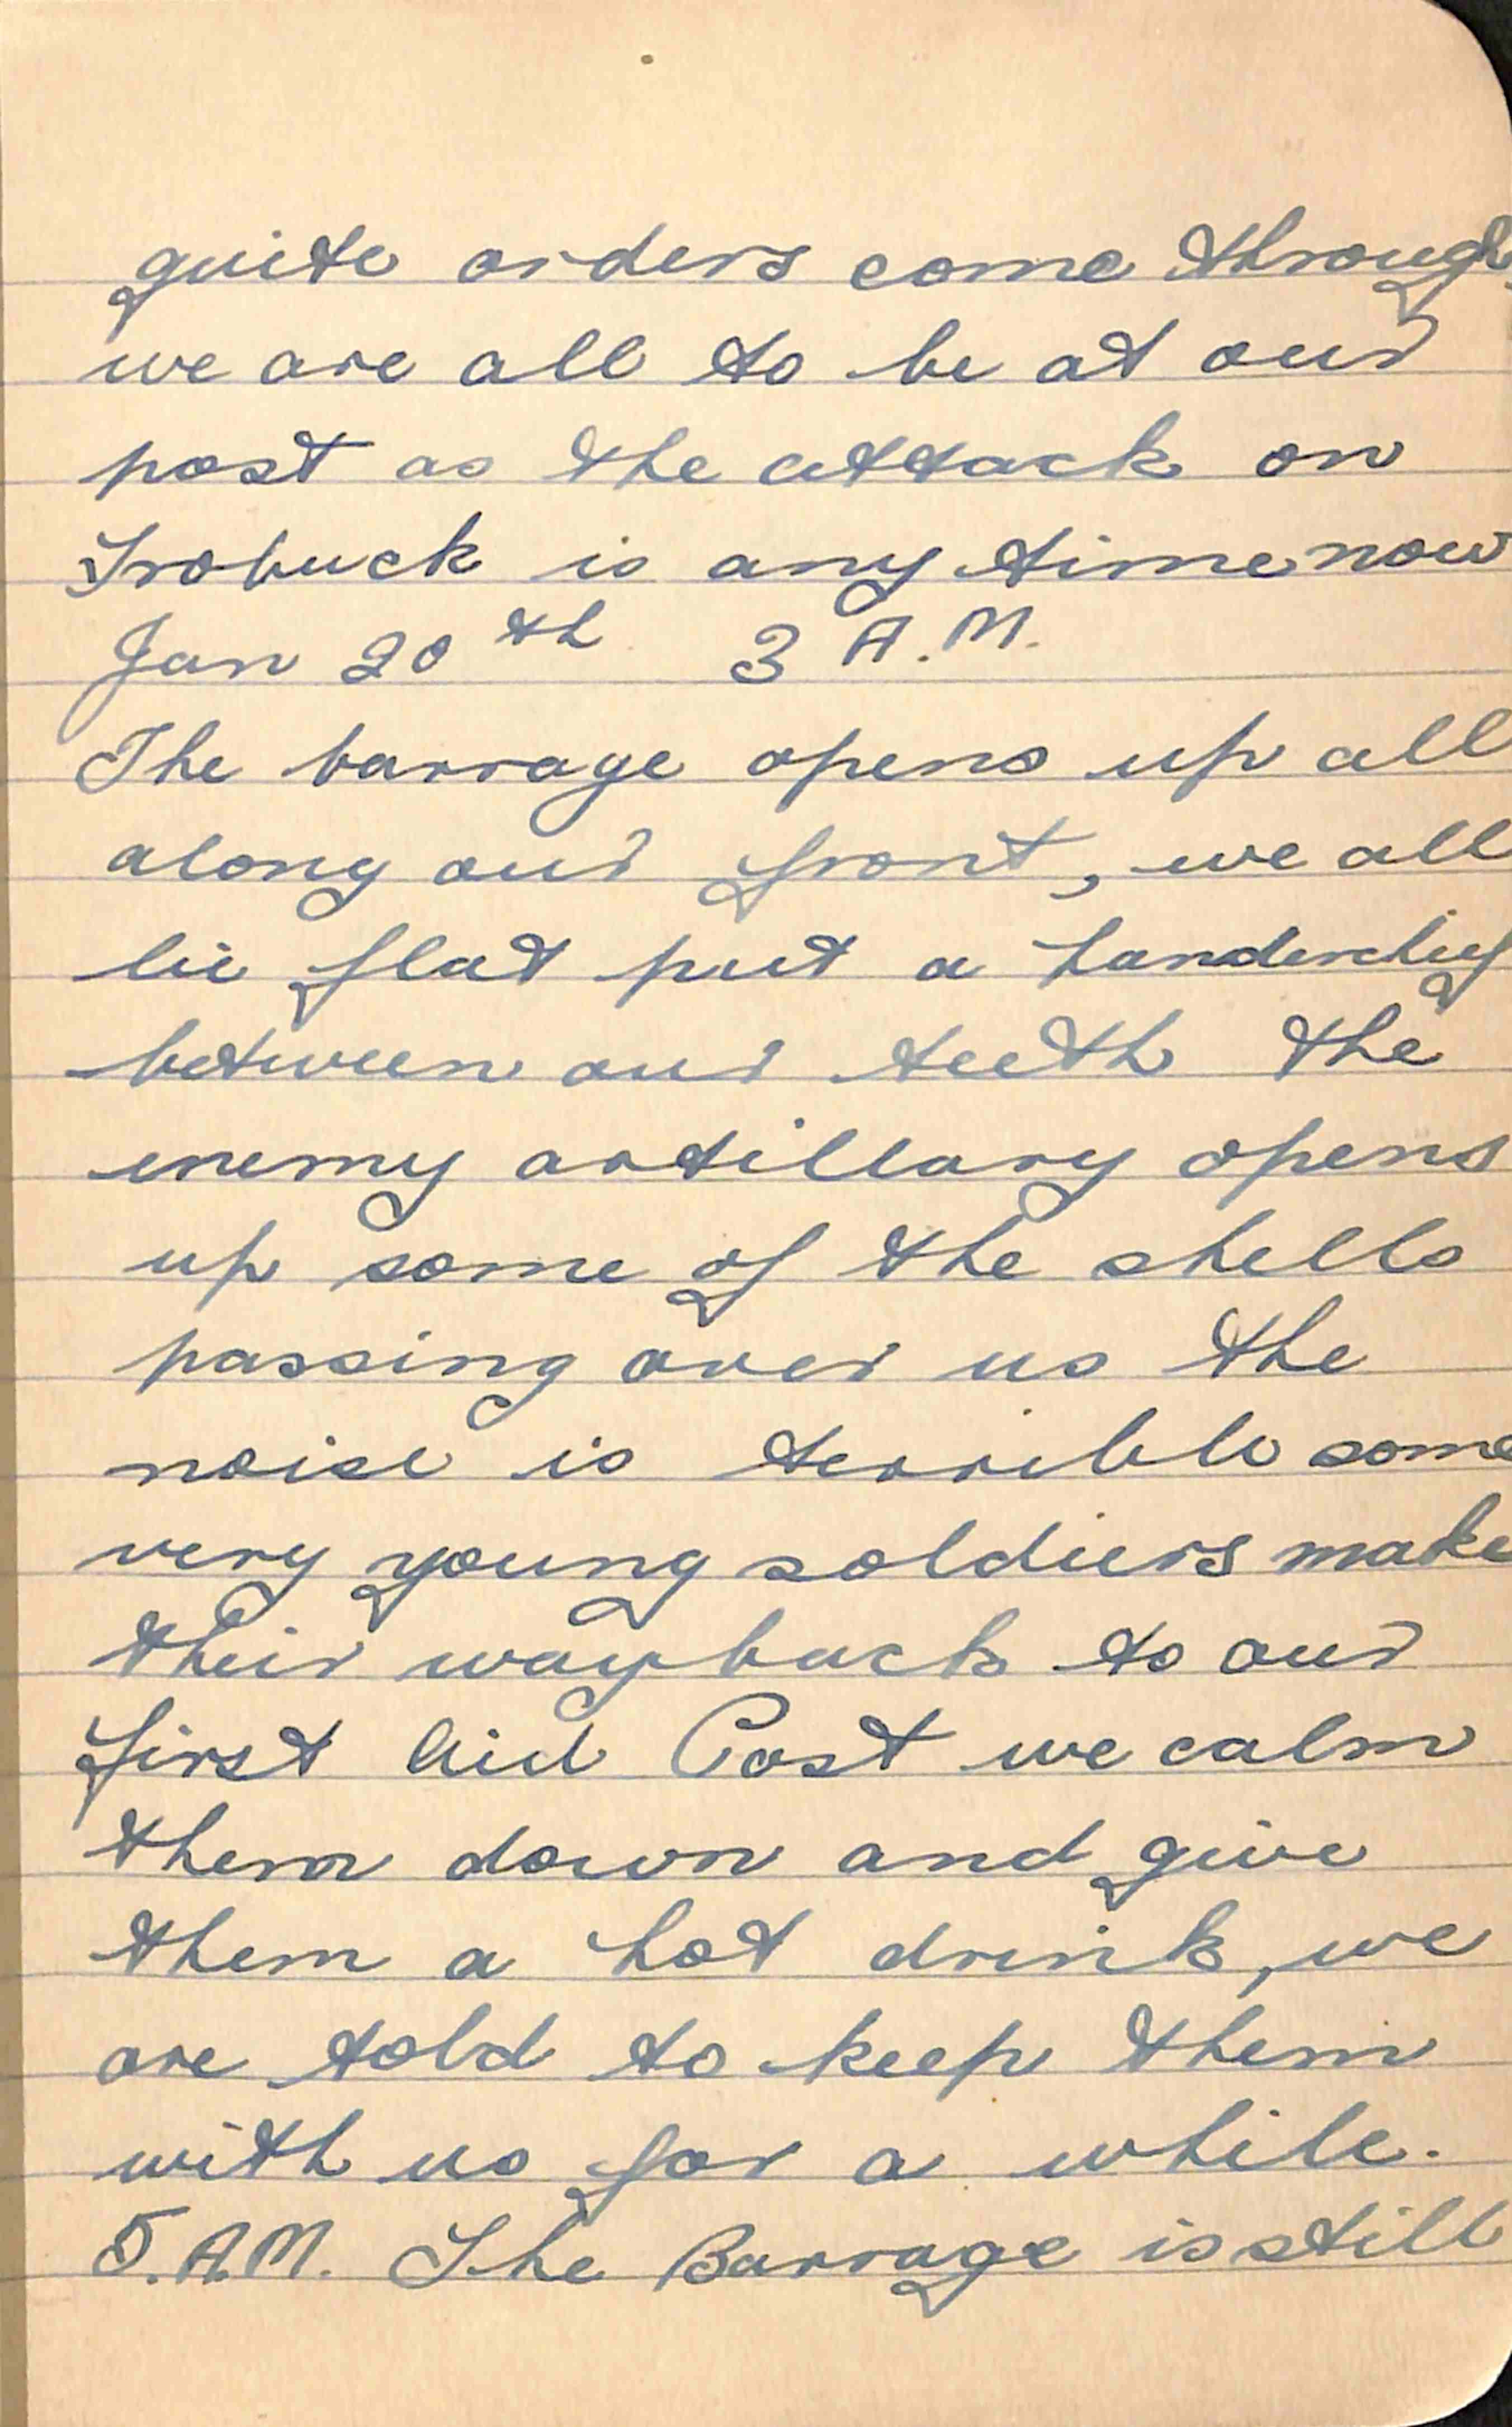 quite orders come through
we are all to be at our
post as the attack on
Trobuck is any time now
Jan 20th 3 A.M.
The barrage opens up all
along our front, we all
lie flat put a handerchief
between our teeth the
enemy artillary opens
up some of the shells
passing over us the
noise is terrible some
very young soldiers make
their way back to our
first Aid Post we calm
them down and give
them a hot drink, we
are told to keep them
with us for a while.
5.A.M. The Barrage is still